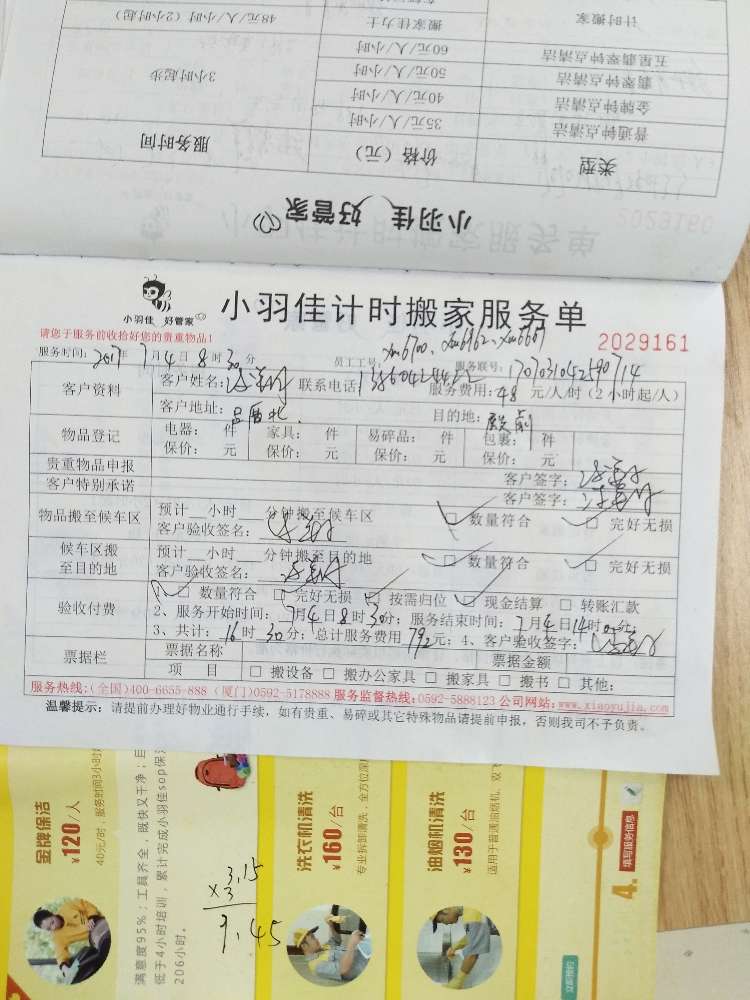 计时搬家
搬家佳力士
48元/人/小时（2小时起）
五星翡翠钟点清洁
60元/人/小时
翡翠钟点清洁
50元/人/小时
3小时起步
金牌钟点清洁
40元/人/小时
普通钟点清洁
35元/人/小时
类型
价格（元）
服务时间
小羽佳 好管家
小羽佳 好管家
小羽佳计时搬家服务单
2029161
请您于服务前收拾好您的贵重物品!
服务时间: 2017年7月4日8时30分
员工工号: xm6700、xm6962、xm6667
服务联号: 1707031042590714
客户资料
客户姓名: 联系电话: 服务费用: 48 元/人/时（2小时起/人）
客户地址: 目的地:
物品登记
电器: 件 家具: 件 易碎品: 件 包裹: 件
保价: 元 保价: 元 保价: 元 保价: 元
贵重物品申报
客户签字:
客户特别承诺
客户签字:
物品搬至候车区
预计__小时 分钟搬至候车区
客户验收签名:
□ 数量符合 □ 完好无损
候车区搬至目的地
预计__小时 分钟搬至目的地
客户验收签名:
□ 数量符合 □ 完好无损
验收付费
□ 数量符合 □ 完好无损 □ 按需归位 □ 现金结算 □ 转账汇款
2、服务开始时间: 7月4日8时30分; 服务结束时间: 7月4日14时 分;
3、共计: 16时30分; 总计服务费用 792元; 4、客户验收签字:
票据栏
票据名称
票据金额
项 目
□ 搬设备 □ 搬办公家具 □ 搬家具 □ 搬书 □ 其他:
服务热线:(全国)400-6655-888 (厦门)0592-5178888 服务监督热线:0592-5888123 公司网站:www.xiaoyujia.com
温馨提示: 请提前办理好物业通行手续, 如有贵重、易碎或其它特殊物品请提前申报, 否则我司不予负责。
金牌保洁
¥120/人
40元/时, 服务时间3小时
满意度95%; 工具齐全, 既快又干净;
低于4小时培训, 累计完成小羽佳sop保
206小时。
3.15
×3
9.45
洗衣机清洗
¥160/台
专业拆卸清洗, 全方位
油烟机清洗
¥130/台
适用于普通油烟机、双
立即预约
4.
填写服务信息